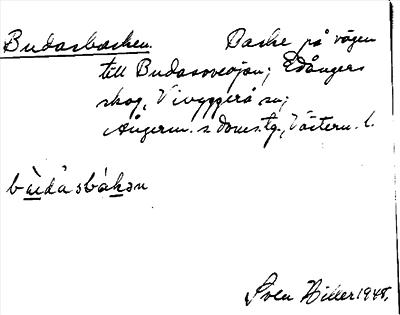 Budasbacken. Backe på vägen
till Budasoveåsen; Edångers
skog, Vivyggerå sn;
Ångerm. s domstg., Västern. l.
bùdåsbákən
Sven Hiller 1948.